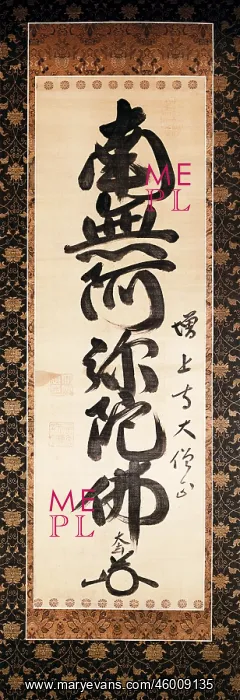 南無阿弥陀佛
増上寺大僧正
ME
PL
ME
PL
www.maryevans.com/46009135